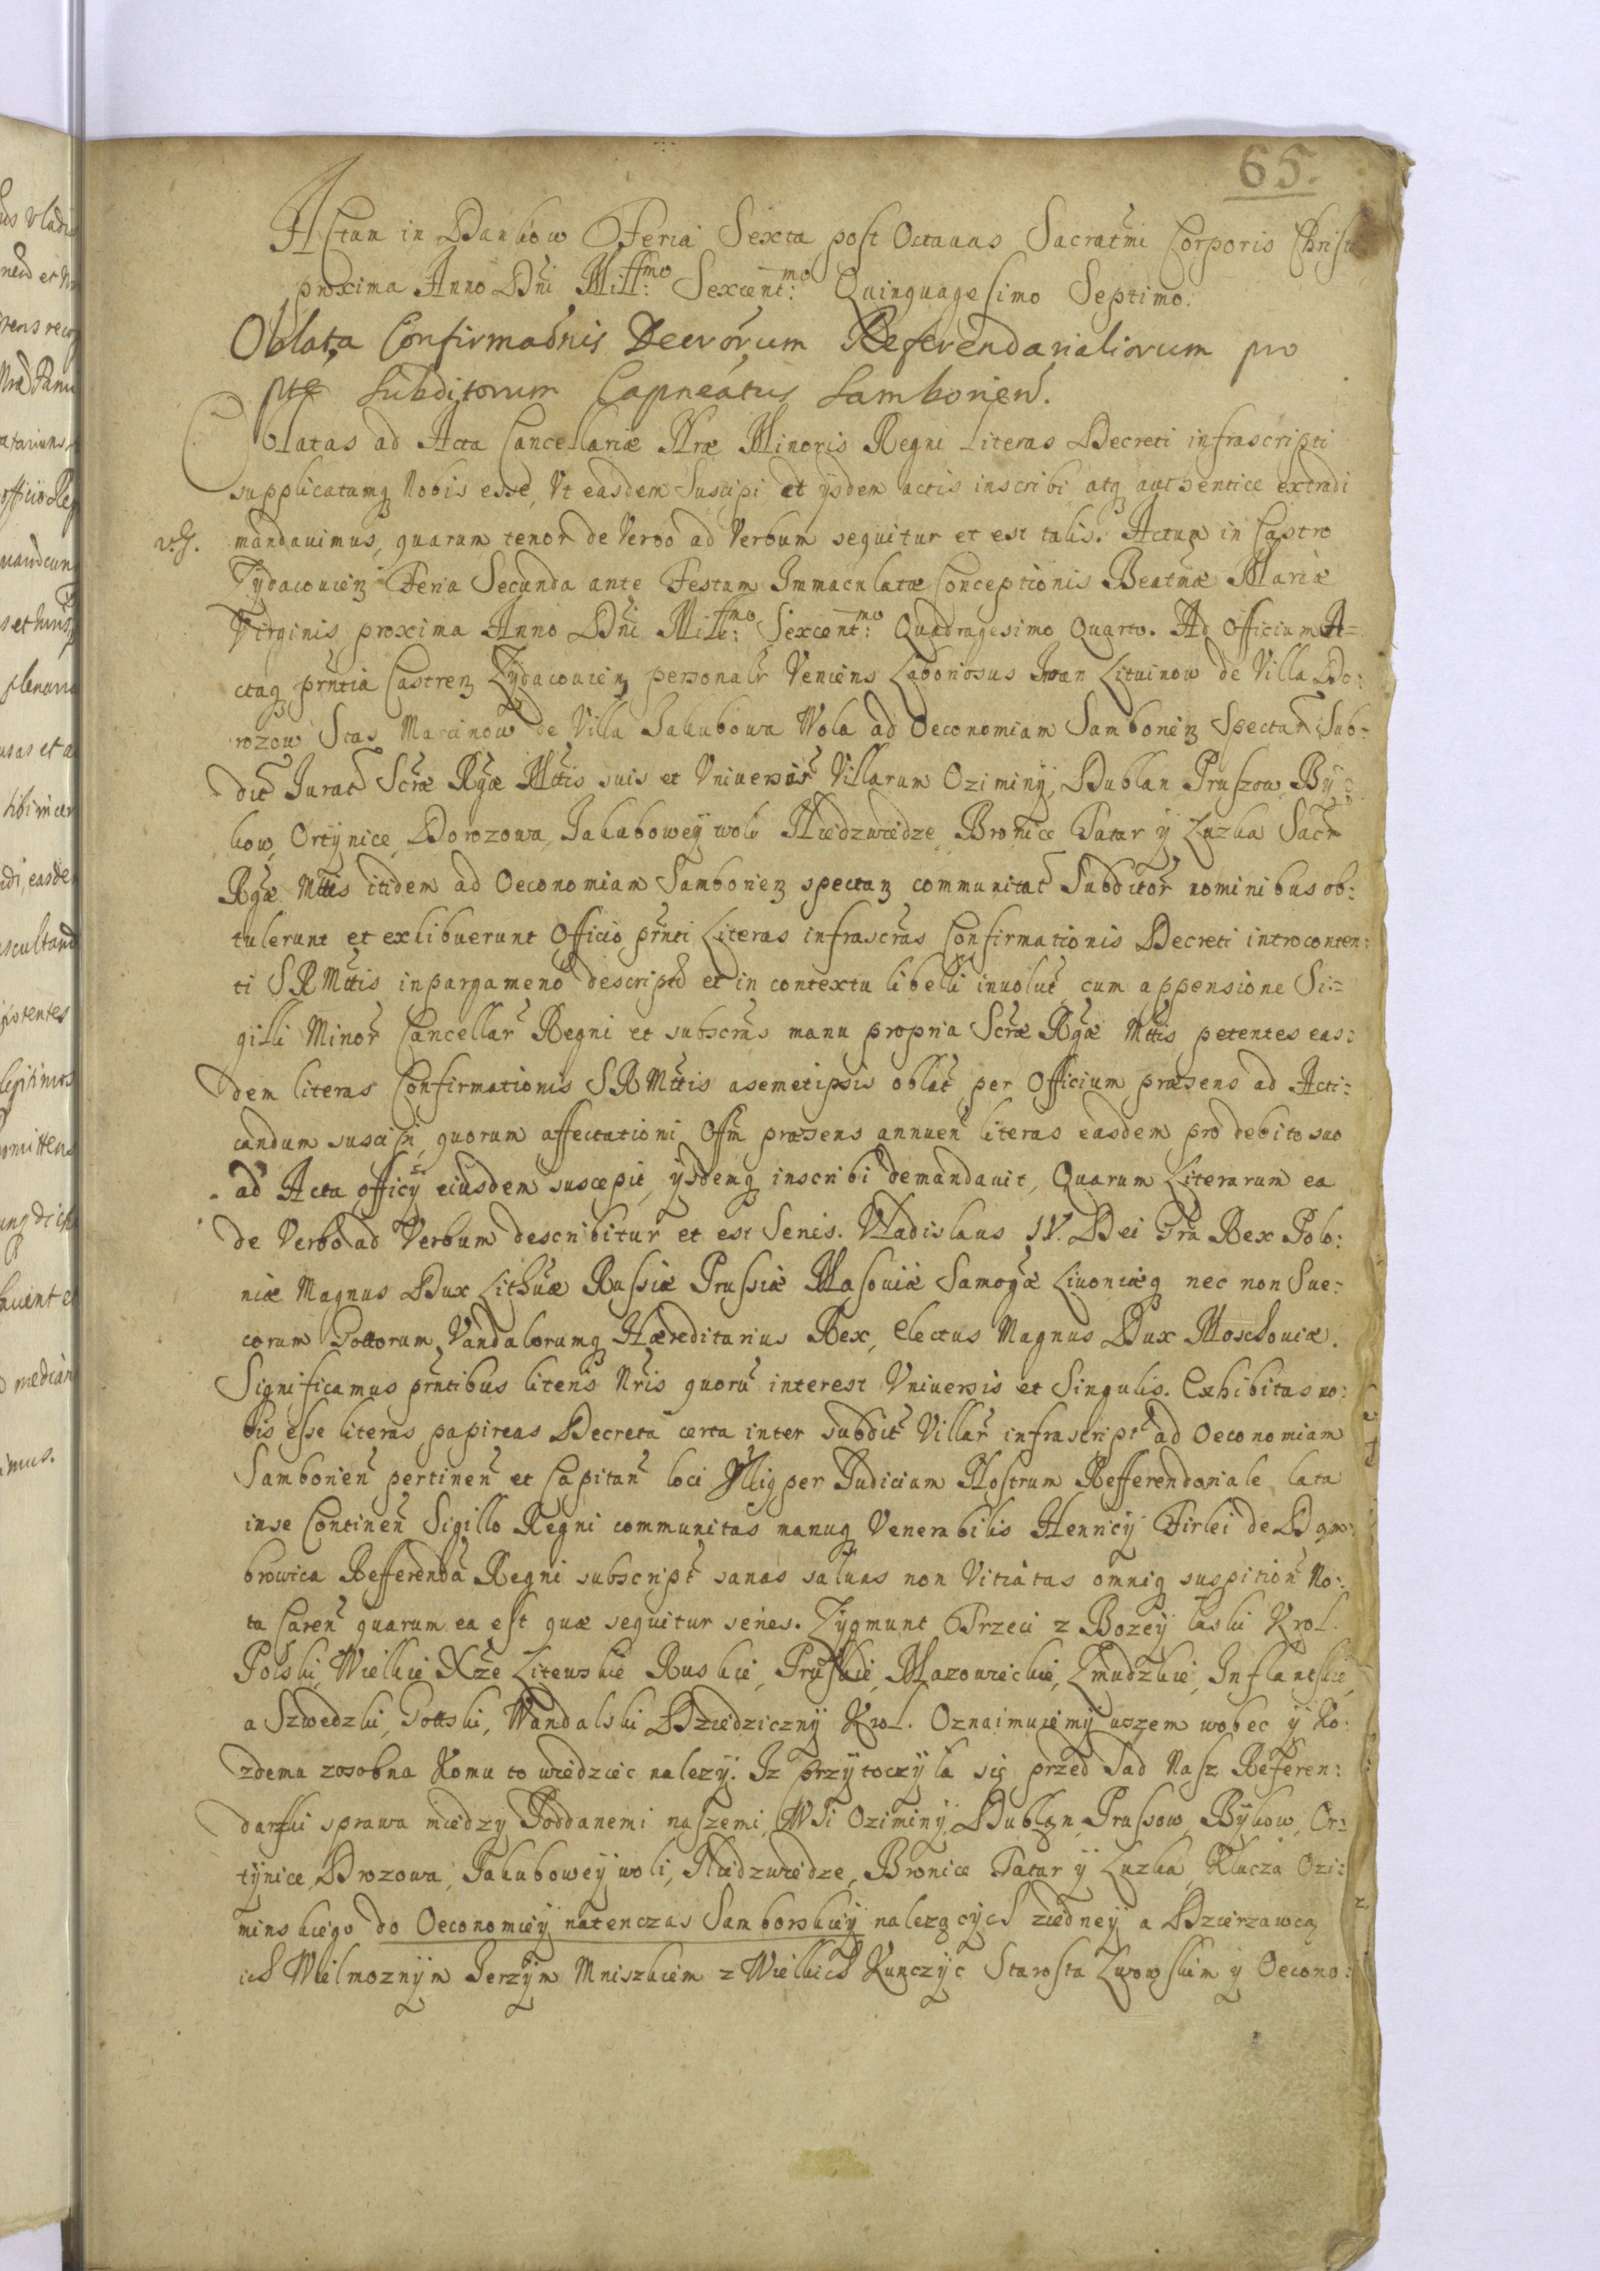 65.
Actum in Dankow Feria Sexta post Octauas Sacratmi Corporis Christi
proxima Anno Dni Mill:mo Sexcent:mo Quinquagesimo Septimo.
Oblata Confirmaonis Decrorum Referendarialiorum pro
pte Subditorum Capneatus Samborien.
Oblatas ad Acta Cancellariæ Nræ Minoris Regni Literas Decreti infrascripti
supplicatumq Nobis esse, Vt easdem Suscipi et ysdem actis inscribi atq authentice extradi
mandauimus, quarum tenor de Verbo ad Verbum sequitur et est talis. Actum in Castro
Zydaczouien Feria Secunda ante Festum Immaculatæ Conceptionis Beatmæ Mariæ
Virginis proxima Anno Dni Mill:mo Sexcent:mo Quadragesimo Quarto. Ad Officium A=
ctaq prntia Castren Zydaczouien personalr Veniens Laboriosus Iwan Lituinow de Villa Do:
rozow Stas Marcinow de Villa Jakubowa Wola ad Oeconomiam Samborien Spectan Sub-
dit Jurat Scræ Rgæ Mttis suis et Vniuersor Villarum Oziminy, Dublan Pruszow, By=
kow, Ortynice, Dorozowa, Jakubowey woli Niedzwiedze, Bronice Tatar y Luzka Sacr
Rgæ Mttis itidem ad Oeconomiam Samborien spectan communitat Subditor nominibus ob:
tulerunt et exhibuerunt Officio prnti Literas infrascras Confirmationis Decreti introconten:
ti SRMttis in pargameno descriptas et in contextu libelli inuolut cum appensione Si:=
gilli Minor Cancellar Regni et subscras manu propria Scræ Rgæ Mttis petentes eas:
dem literas Confirmationis SRMttis asemetipsis oblat per Officium præsens ad Acti:
candum suscipi, quorum affectationi Offm præsens annuen literas easdem pro debito suo
ad Acta officy eiusdem suscepit, ysdemq inscribi demandauit, Quarum Literarum ea
de Verbo ad Verbum describitur et est Series. Vladislaus IV. Dei Gra Rex Polo:
niæ Magnus Dux Lithuæ Russiæ Prussiæ Masouiæ Samogæ Liuoniæq nec non Sue:
corum Gottorum Vandalorumq Hæreditarius Rex, electus Magnus Dux Moschouiæ.
Significamus prntibus literis Nris quorum interest Vniuersis et Singulis. Exhibitas no:
bis esse literas papireas Decreta certa inter subdit Villar infrascript ad Oeconomiam
Samborien pertinen et Capitan loci Illiq per Judicium Nostrum Refferendariale lata
in se Continen Sigillo Regni communitas manuq Venerabilis Henricy Firlei de Dąm:
browica Refferenda Regni subscript sanas saluas non Vitiatas omniq suspition No:
ta Caren quarum ea est quæ sequitur series. Zygmunt Trzeci z Bozey łaski Krol
Polski, Wielkie Xże Litewskie Ruskie, Pruskie, Mazowieckie, Zmudzkie, Inflantskie,
a Szwedzki, Gottski, Wandalski Dziedziczny Krol. Oznaimuiemy wszem wobec y Ko:
zdemu zosobna Komu to wiedziec nalezy. Iz przytoczyła się przed Sad Nasz Referen:
darski sprawa miedzy Poddanemi naszemi, Wsi Oziminy, Dublan, Prussow, Bykow, Or=
tynice, Drozowa, Jakubowey woli, Niedzwiedze, Bronice Tatar y Luzka, Klucza Ozi:
minskiego do Oeconomiey natenczas Samborskiey nalezących ziedney a Dzierzawcą
ich Wielmoznym Jerzym Mniszkiem z Wielkich Kunczyc Starosta Lwowskim y Oecono: